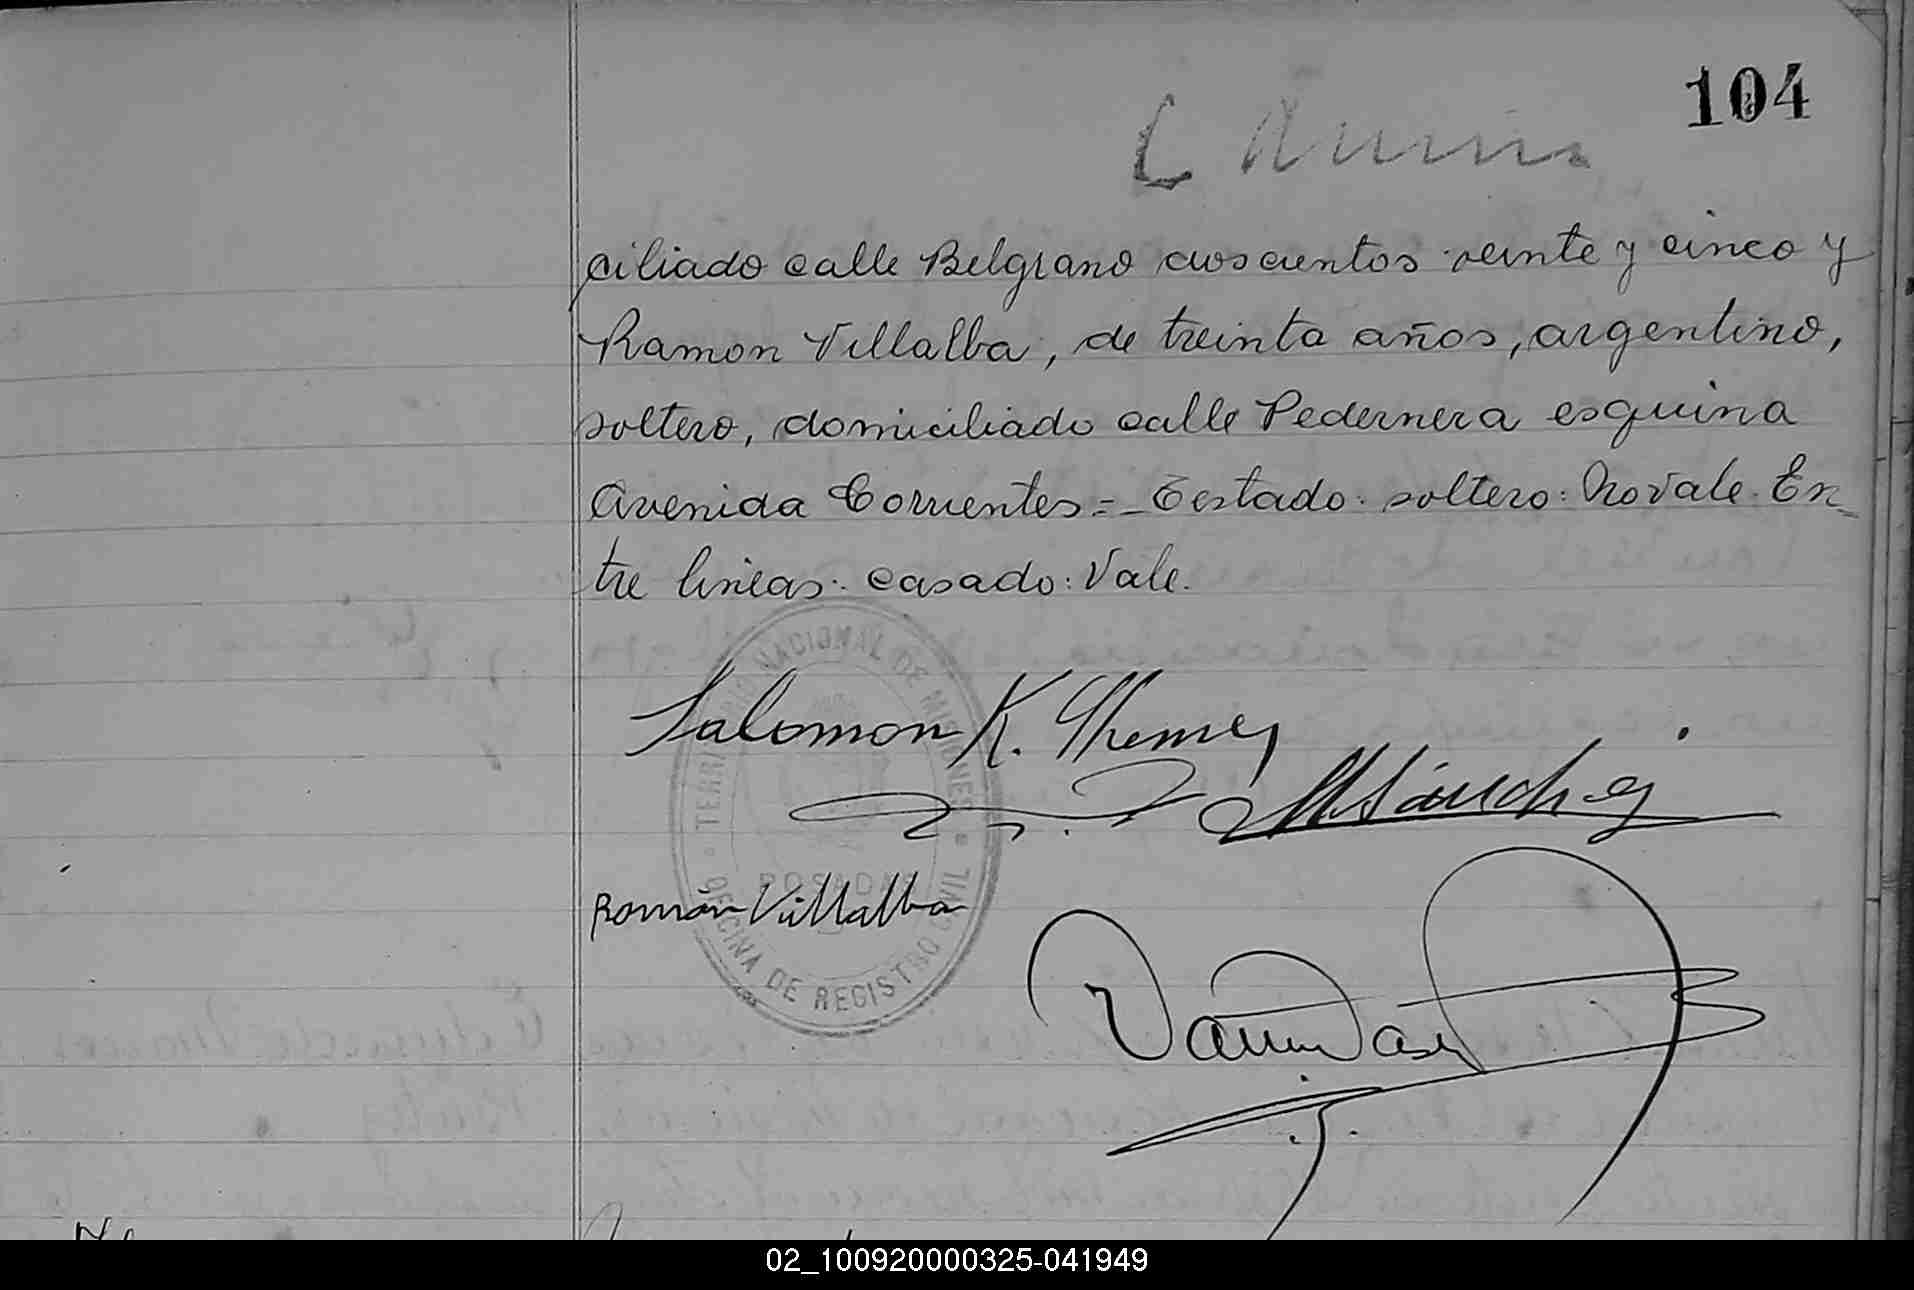 104
ciliado calle Belgrano doscientos veinte y cinco y
Ramon Villalba, de treinta años, argentino,
soltero, domiciliado calle Pedernera esquina
Avenida Corrientes = Testado: soltero: No vale. En_
tre lineas: casado: Vale.
TERRITORIO NACIONAL DE MISIONES
POSADAS
OFICINA DE REGISTRO CIVIL
Salomon K.
MSánchez
Román Villalba
02_100920000325-041949